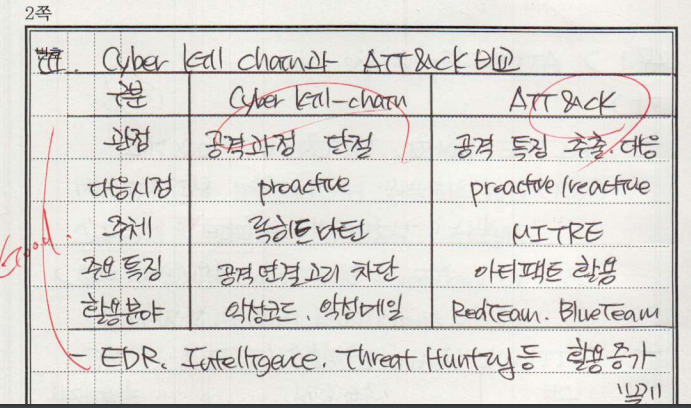 2쪽
III. Cyber kill chain과 ATT&CK 비교
구분 Cyber kill-chain ATT&CK
관점 공격과정 단절 공격 특징 추출.대응
대응시점 proactive proactive/reactive
주체 록히드마틴 MITRE
주요 특징 공격연결고리 차단 아티팩트 활용
활용분야 악성코드, 악성메일 RedTeam. BlueTeam
Good.
- EDR, Intelligence, Threat Hunting 등 활용증가
"끝"